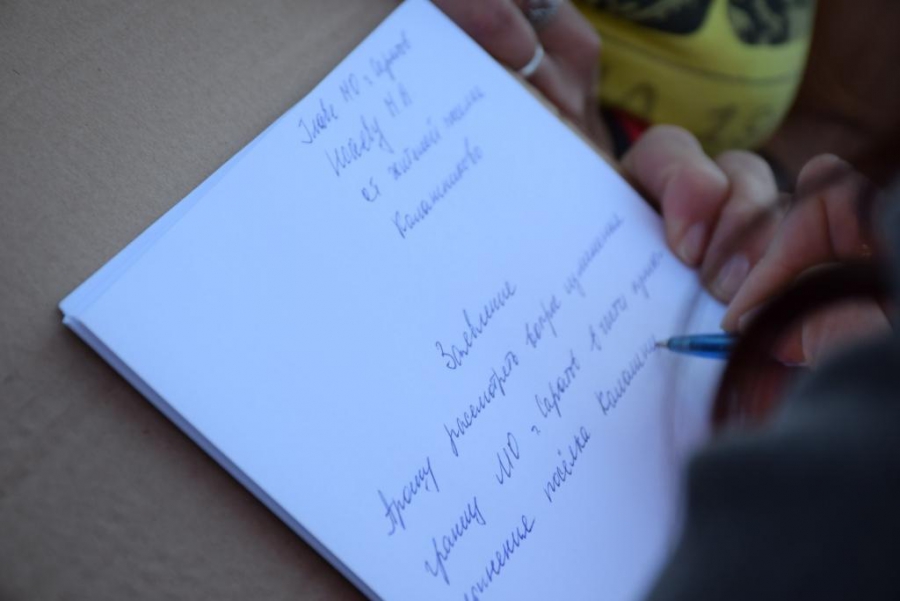 Главе МО г. Саратов
Исаеву М.В
от жителей поселка
Калашниково
Заявление
Прошу рассмотреть вопрос изменения
границ МО г. Саратов в части
поселка